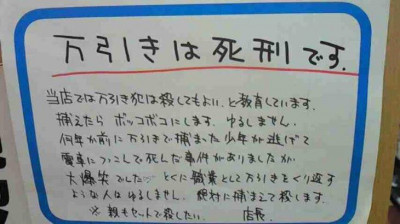 万引きは死刑です.
当店では万引き犯は殺してもよい、と教育しています.
捕えたら ボッコボコにします. ゆるしません.
何年か前に万引きで捕まった少年が逃げて
電車につっこんで死んだ事件がありましたが
大爆笑でした… とくに職業として万引きをくり返す
ような人はゆるしません. 絶対に捕まえて殺します.
※親もセットで殺したい. 店長.